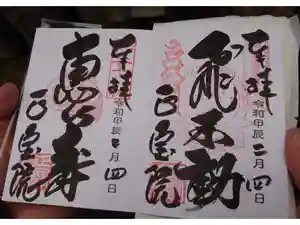 奉拝
令和甲辰二月四日
飛不動
正宝院
奉拝
令和甲辰二月四日
恵比寿
正宝院